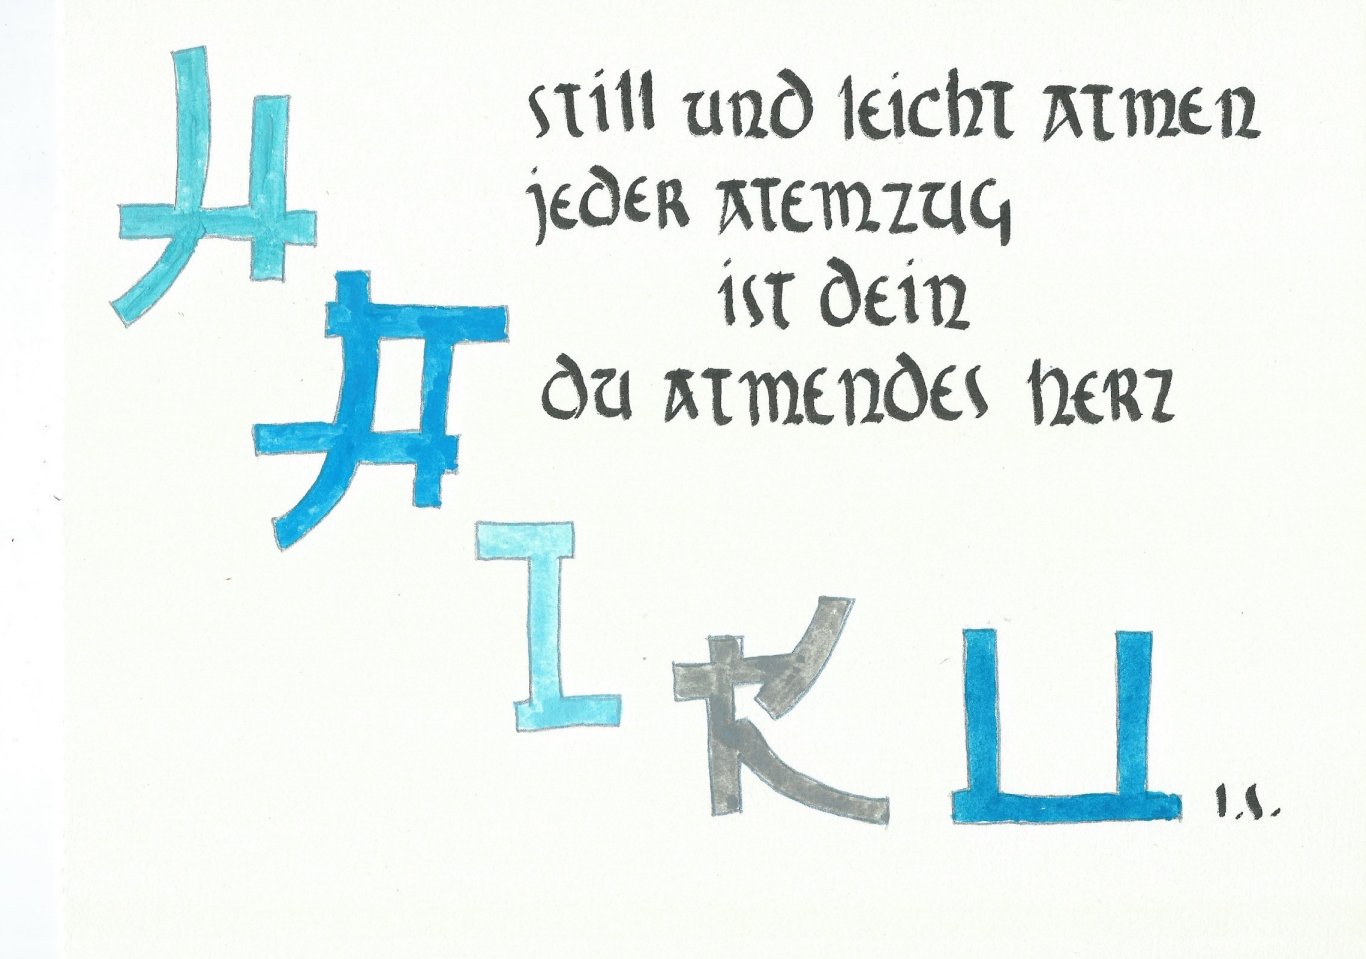 still und leicht atmen
jeder atemzug
ist dein
du atmendes herz
HAIKU
I.S.